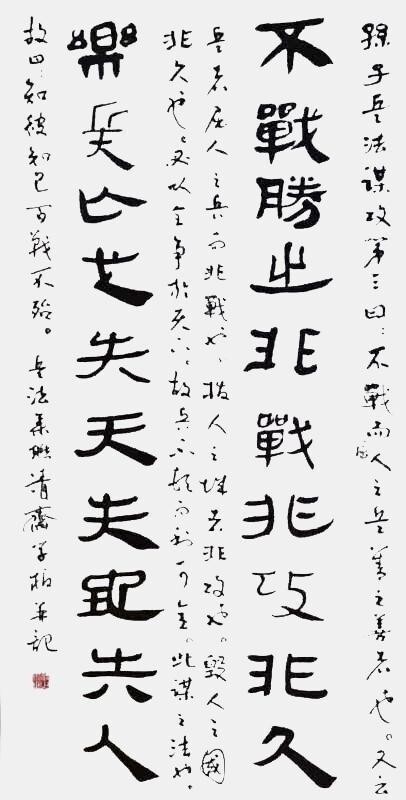 孫子兵法謀攻第三曰：不戰而屈人之兵善之善者也。又云
不戰勝之非戰非攻非久
兵者屈人之兵而非戰也，拔人之城者非攻也。毀人之國
非久也。必以全爭於天下，故兵不頓而利可全。此謀之法也。
樂兵亡也失天失地失人
故曰：知彼知己百戰不殆。兵法集聯清齋學柏並記